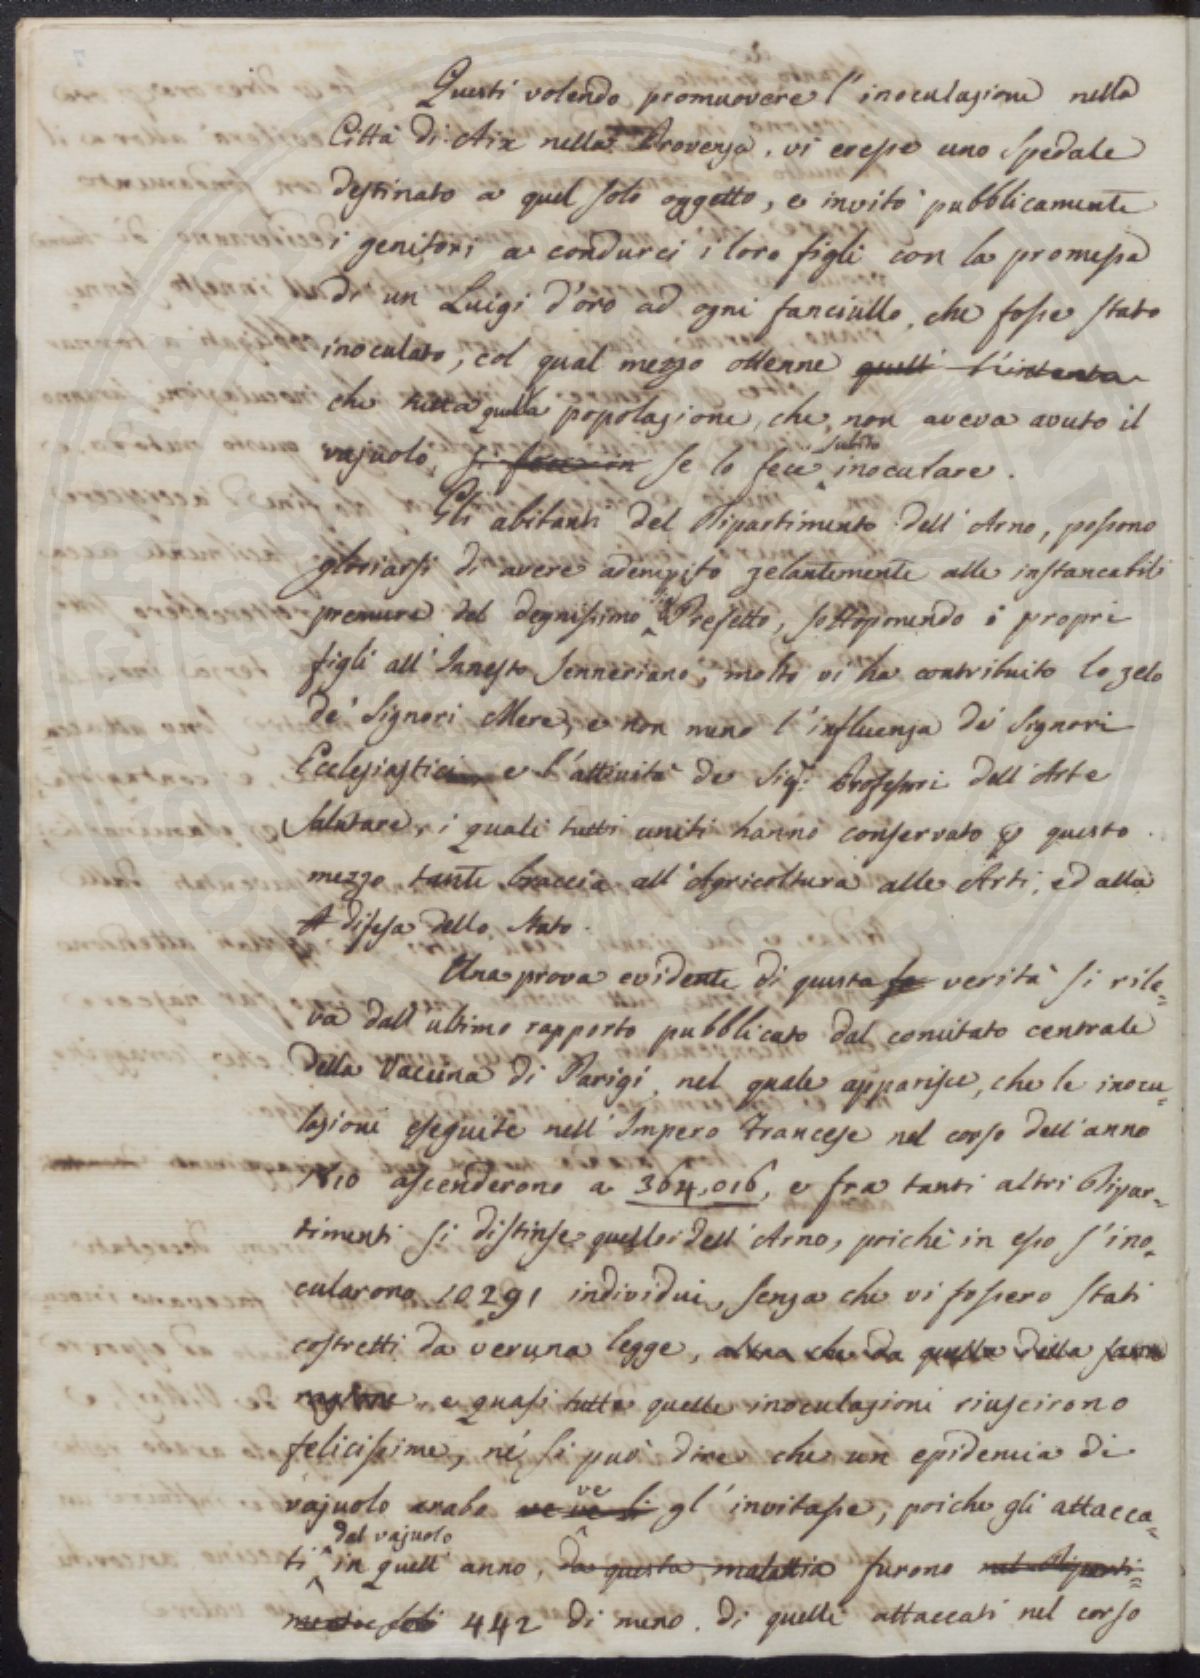 Questi volendo promuovere l'inoculazione nella
Città di Aix nella Provenza, vi eresse uno spedale
destinato a quel solo oggetto, e invitò pubblicamente
i genitori a condurci i loro figli con la promessa
di un Luigi d'oro ad ogni fanciullo, che fosse stato
inoculato, col qual mezzo ottenne quell' l'intento
che tutta quella popolazione, che non aveva avuto il
vajuolo, si fece in se lo fece subito inoculare.
Gli abitanti del Dipartimento dell'Arno, possono
gloriarsi di avere adempito zelantemente alle instancabili
premure del degnissimo Prefetto, sottoponendo i propri
figli all'Innesto Jenneriano; molto vi ha contribuito lo zelo
de' Signori Mere, e non meno l'influenza de' Signori
Ecclesiastici e l'attività de Sigi: Professori dell'Arte
Salutare, i quali tutti uniti hanno conservato p questo
mezzo tante braccia all'Agricoltura alle Arti, ed alla
A difesa dello Stato.
Una prova evidente di questa fa verità si rile=
va dall'ultimo rapporto pubblicato dal comitato centrale
della Vaccina di Parigi, nel quale apparisce, che le inocu=
lazioni eseguite nell'Impero Francese nel corso dell'anno
1810 ascenderono a 364,016, e fra tanti altri Dipar=
timenti si distinse quello dell'Arno, poichè in esso s'ino=
cularono 10291 individui, senza che vi fossero stati
costretti da veruna legge, altra che da quella della sana
ragione, e quasi tutte quelle inoculazioni riuscirono
felicissime, nè si può dire che un epidemia di
vajuolo arabo ve ve li ve gl'invitasse, poiche gli attacca=
ti dal vajuolo in quell'anno, da questa malattia furono nel Diparti=
mento soli 442 di meno di quelli attaccati nel corso